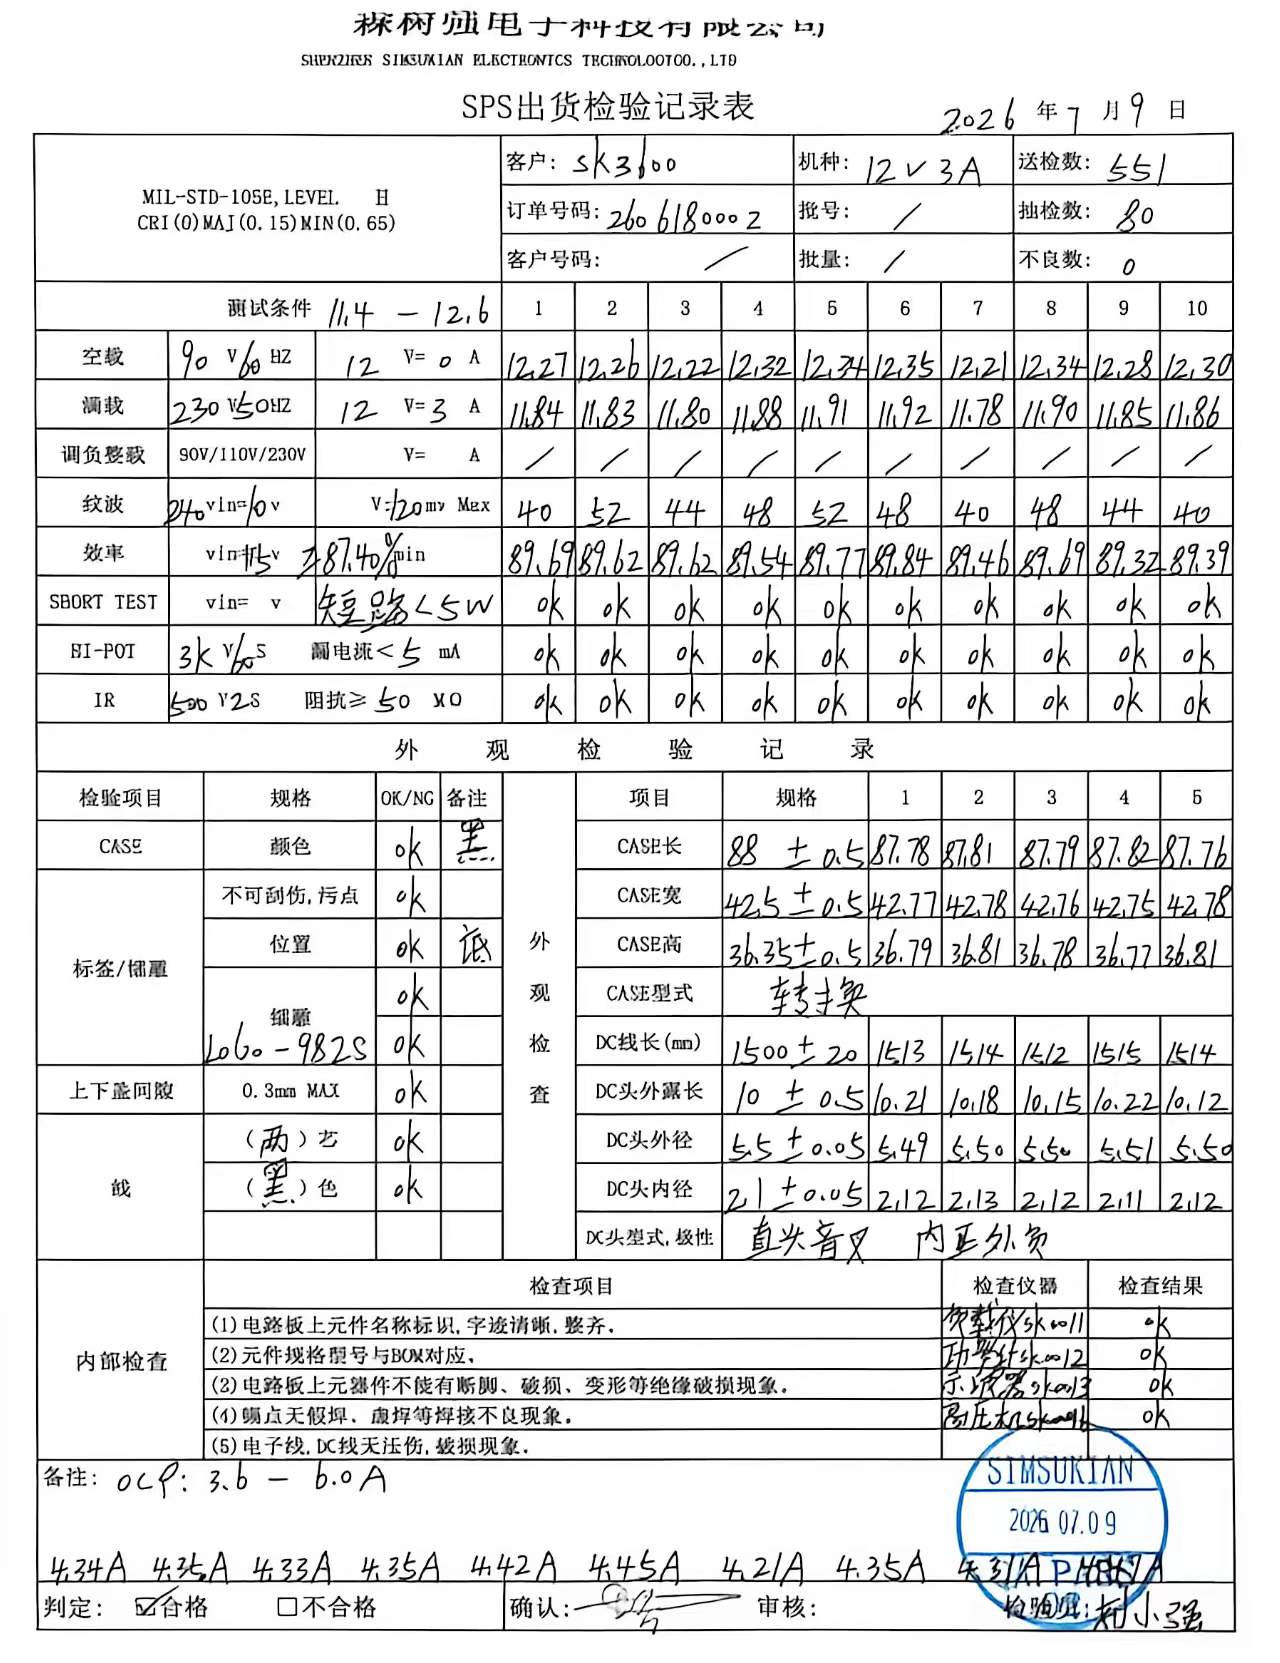 森树强电子科技有限公司
SHENZHEN SIMSUKIAN ELECTRONICS TECHNOLOOTOO.,LTD
SPS出货检验记录表 2026 年 7 月 9 日
MIL-STD-105E,LEVEL H
CRI(0)MAJ(0.15)MIN(0.65)
客户: SK3600 机种: 12V3A 送检数: 551
订单号码: 2606180002 批号: / 抽检数: 80
客户号码: / 批量: / 不良数: 0
测试条件 11.4 - 12.6 1 2 3 4 5 6 7 8 9 10
空载 90 V 60 HZ 12 V= 0 A 12.27 12.26 12.22 12.32 12.34 12.35 12.21 12.34 12.28 12.30
满载 230 V 50HZ 12 V= 3 A 11.84 11.83 11.80 11.88 11.91 11.92 11.78 11.90 11.85 11.86
调负整载 90V/110V/230V V= A / / / / / / / / / /
纹波 240 vin= v V=120mv Max 40 52 44 48 52 48 40 48 44 40
效率 vin=115 v ≥87.40% min 89.69 89.62 89.62 89.54 89.77 89.84 89.46 89.69 89.32 89.39
SHORT TEST vin= v 短路<5W ok ok ok ok ok ok ok ok ok ok
HI-POT 3K V 60 S 漏电流< 5 mA ok ok ok ok ok ok ok ok ok ok
IR 500 V 2S 阻抗≥ 50 MΩ ok ok ok ok ok ok ok ok ok ok
外观检验记录
检验项目 规格 OK/NG 备注 项目 规格 1 2 3 4 5
CASE 颜色 ok 黑 CASE长 88 ± 0.5 87.78 87.81 87.79 87.82 87.76
不可刮伤,污点 ok CASE宽 42.5 ± 0.5 42.77 42.78 42.76 42.75 42.78
标签/镭雕 位置 ok 底 外观检查 CASE高 36.35±0.5 36.79 36.81 36.78 36.77 36.81
镭雕 ok CASE型式 转换
LOGO-982S ok DC线长(mm) 1500 ± 20 1513 1514 1512 1515 1514
上下盖间隙 0.3mm MAX ok DC头外露长 10 ± 0.5 10.21 10.18 10.15 10.22 10.12
(两)芯 ok DC头外径 5.5 ± 0.05 5.49 5.50 5.50 5.51 5.50
线 (黑)色 ok DC头内径 2.1 ± 0.05 2.12 2.13 2.12 2.11 2.12
DC头型式,极性 直头音叉 内正外负
内部检查 检查项目 检查仪器 检查结果
(1)电路板上元件名称标识,字迹清晰,整齐. 负载仪sk0011 ok
(2)元件规格型号与BOM对应. 功率计sk0012 ok
(3)电路板上元器件不能有断脚、破损、变形等绝缘破损现象. 示波器sk0013 ok
(4)锡点无假焊、虚焊等焊接不良现象. 高压机 ok
(5)电子线,DC线无压伤,破损现象.
备注: OCP: 3.6 - 6.0A
SIMSUKIAN
2026 07.09
4.34A 4.35A 4.33A 4.35A 4.42A 4.45A 4.21A 4.35A 4.31A
判定: ☑合格 □不合格 确认: 审核: 检验员: 小强